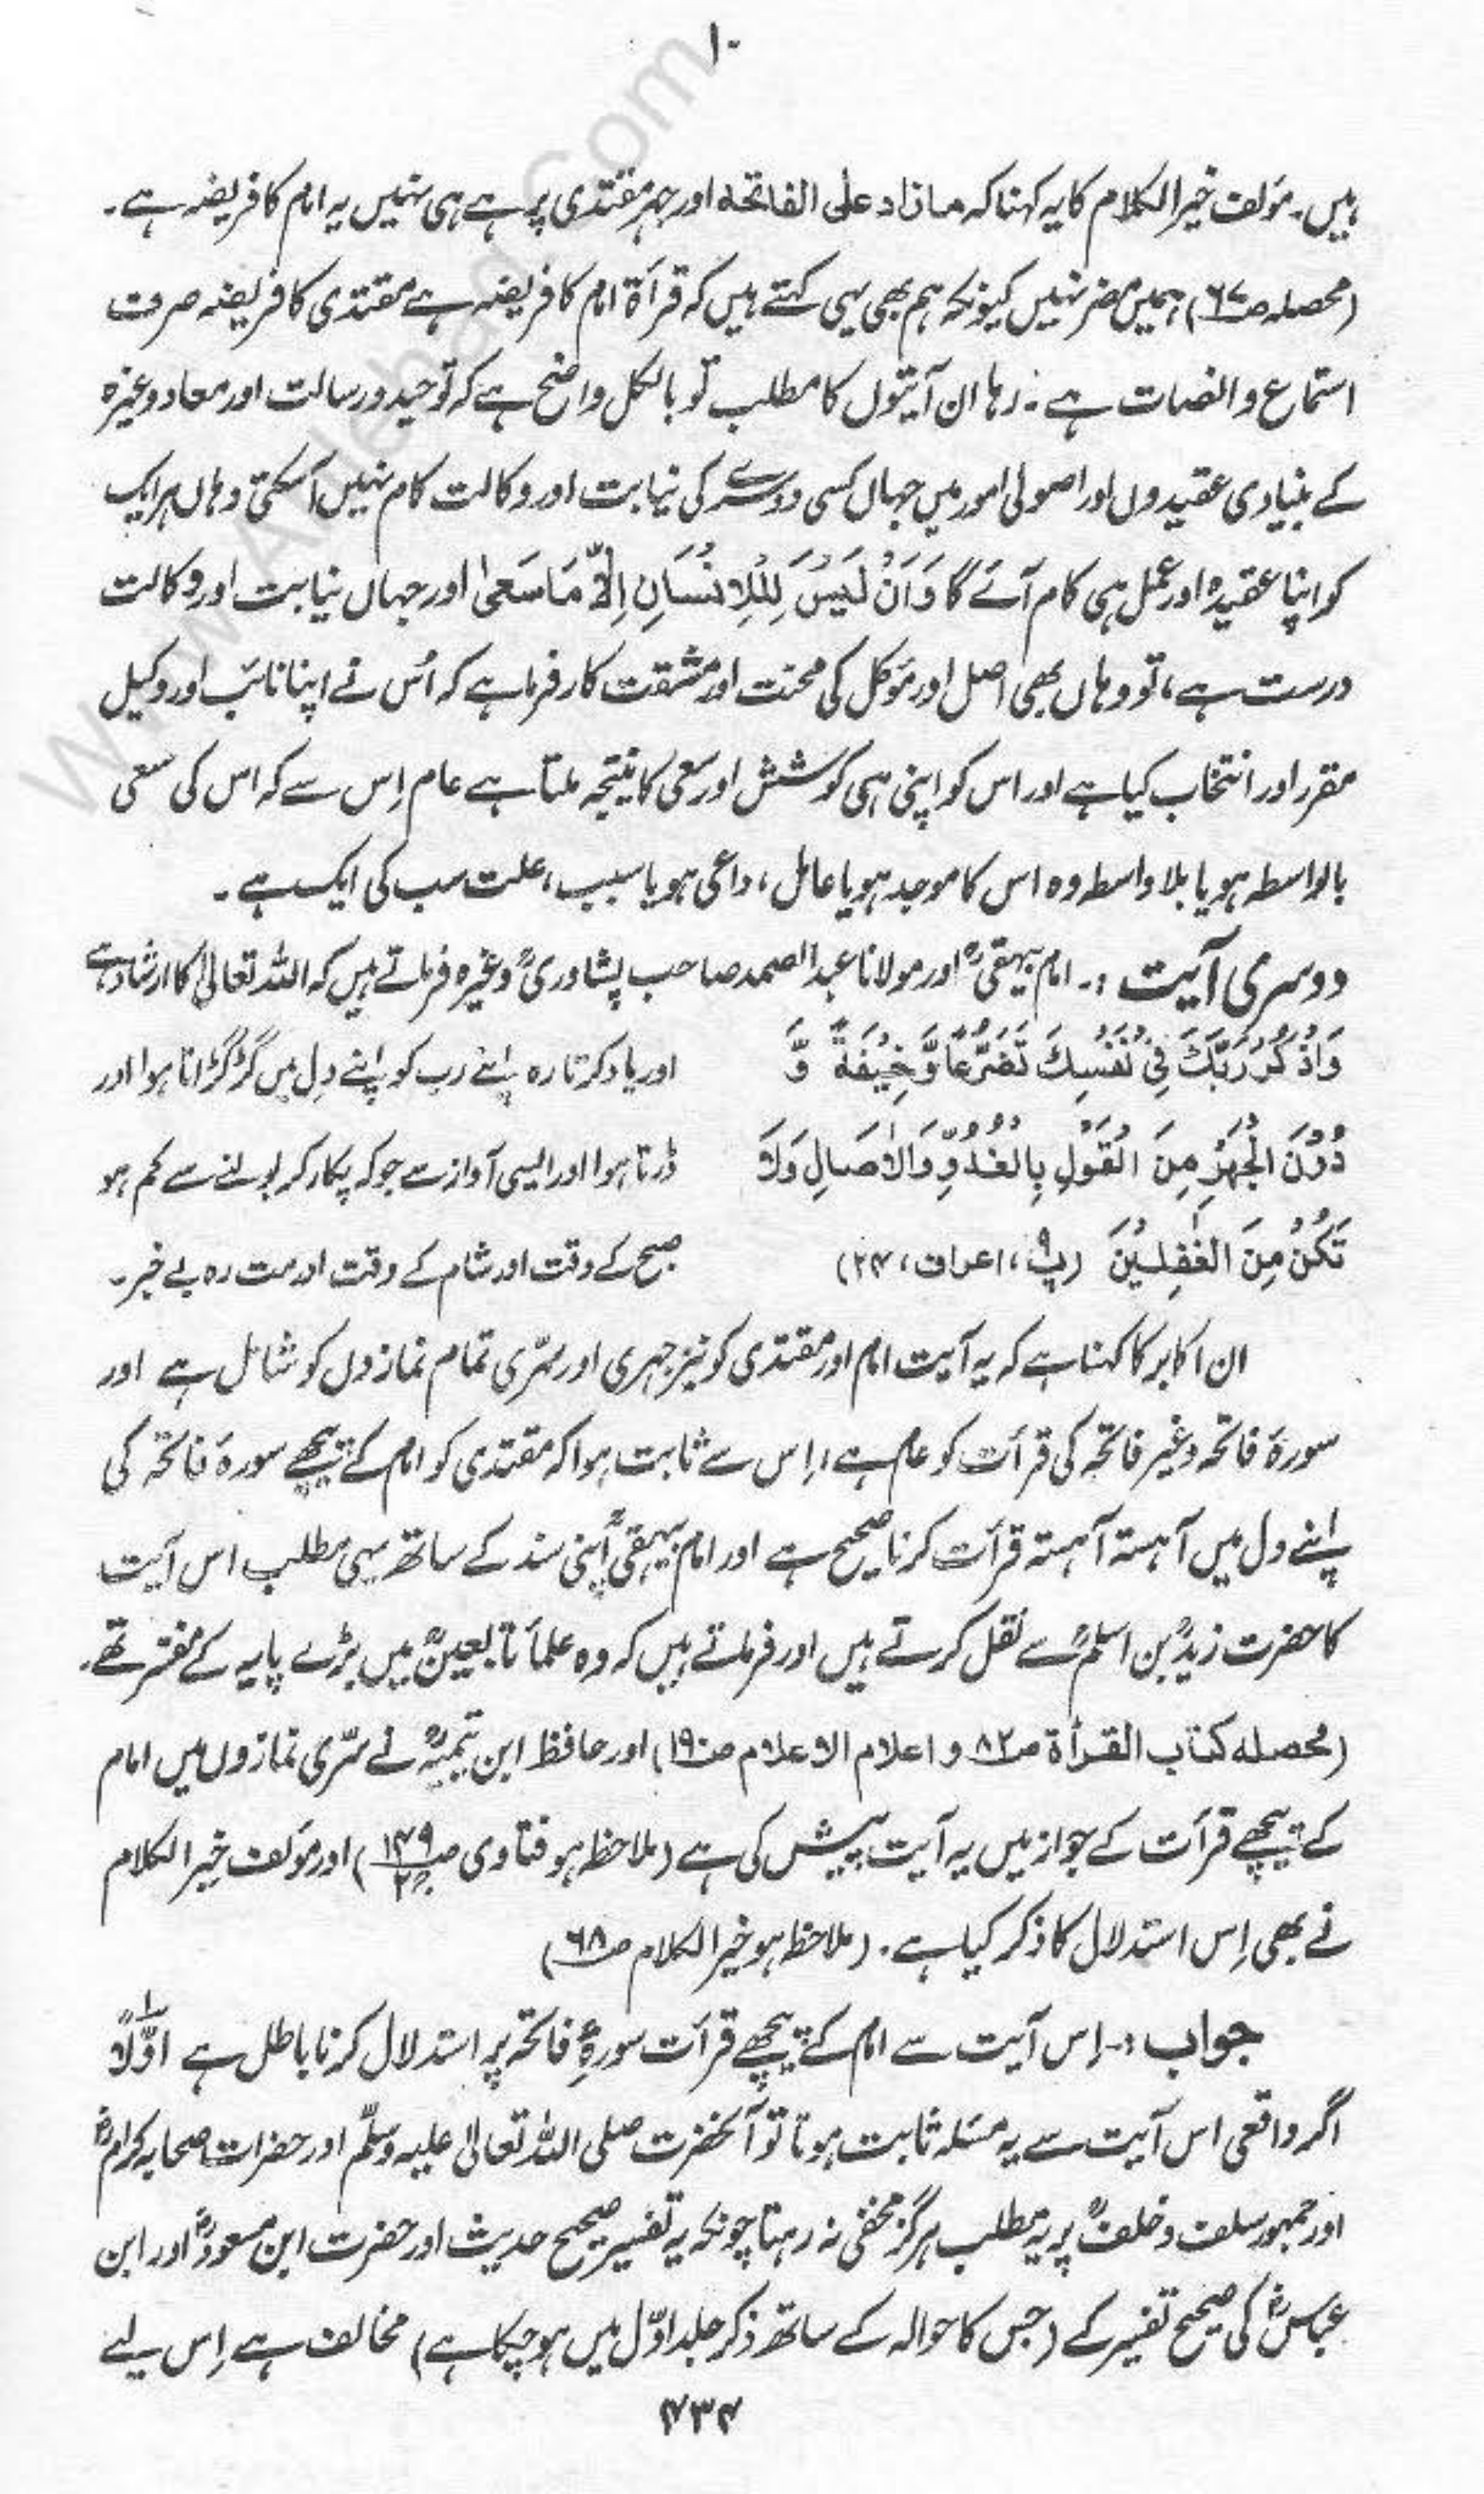 ۱۰
ہیں۔ مؤلف خیر الکلام کا یہ کہنا کہ مازاد علی الفاتحة اور جہر مقتدی پر ہے ہی نہیں یہ امام کا فریضہ ہے۔
(محصلہ ص۶۷) ہمیں مضر نہیں کیونکہ ہم بھی یہی کہتے ہیں کہ قرأۃ امام کا فریضہ ہے مقتدی کا فریضہ صرف
استماع و انصات ہے۔ رہا ان آیتوں کا مطلب تو بالکل واضح ہے کہ توحید و رسالت اور معاد وغیرہ
کے بنیادی عقیدوں اور اصولی امور میں جہاں کسی دوسرے کی نیابت اور وکالت کام نہیں آسکتی وہاں ہر ایک
کو اپنا عقیدہ اور عمل ہی کام آئے گا وَاَنْ لَیْسَ لِلْاِنْسَانِ اِلَّا مَا سَعٰی اور جہاں نیابت اور وکالت
درست ہے، تو وہاں بھی اصل اور مؤکل کی محنت اور مشقت کارفرما ہے کہ اُس نے اپنا نائب اور وکیل
مقرر اور انتخاب کیا ہے اور اس کو اپنی ہی کوشش اور سعی کا نتیجہ ملتا ہے عام اِس سے کہ اس کی سعی
بالواسطہ ہو یا بلاواسطہ وہ اس کا موجد ہو یا عامل، داعی ہو یا سبب، علت سب کی ایک ہے۔
دوسری آیت :۔ امام بیہقیؒ اور مولانا عبد الصمد صاحب پشاوریؒ وغیرہ فرماتے ہیں کہ اللہ تعالیٰ کا ارشاد ہے
وَاذْکُرْ رَّبَّکَ فِیْ نَفْسِکَ تَضَرُّعًا وَّخِیْفَةً وَّ اور یاد کرتا رہ اپنے رب کو اپنے دل میں گڑگڑاتا ہوا اور
دُوْنَ الْجَهْرِ مِنَ الْقَوْلِ بِالْغُدُوِّ وَالْاٰصَالِ وَلَا ڈرتا ہوا اور ایسی آواز سے جو کہ پکار کر بولنے سے کم ہو
تَکُنْ مِنَ الْغٰفِلِیْنَ (پ۹، اعراف، ۲۴) صبح کے وقت اور شام کے وقت اور مت رہ بے خبر۔
ان اکابر کا کہنا ہے کہ یہ آیت امام اور مقتدی کو نیز جہری اور سرّی تمام نمازوں کو شامل ہے اور
سورۃ فاتحہ و غیر فاتحہ کی قرأت کو عام ہے، اِس سے ثابت ہوا کہ مقتدی کو امام کے پیچھے سورۃ فاتحہ کی
اپنے دل میں آہستہ آہستہ قرأت کرنا صحیح ہے اور امام بیہقیؒ اپنی سند کے ساتھ یہی مطلب اس آیت
کا حضرت زیدؒ بن اسلمؒ سے نقل کرتے ہیں اور فرماتے ہیں کہ وہ علماء تابعینؒ میں بڑے پایہ کے مفسر تھے۔
(محصلہ کتاب القرأة ص۸۲ و اعلام الاعلام ص۱۹۰) اور حافظ ابن تیمیہؒ نے سرّی نمازوں میں امام
کے پیچھے قرأت کے جواز میں یہ آیت پیش کی ہے (ملاحظہ ہو فتاوی ص۱۴۹ ج۲) اور مؤلف خیر الکلام
نے بھی اِس استدلال کا ذکر کیا ہے۔ (ملاحظہ ہو خیر الکلام ص۶۸)
جواب :۔ اِس آیت سے امام کے پیچھے قرأت سورۂ فاتحہ پر استدلال کرنا باطل ہے اوّلاً
اگر واقعی اس آیت سے یہ مسئلہ ثابت ہوتا تو آنحضرت صلی اللہ تعالیٰ علیہ وسلّم اور حضرات صحابہ کرامؓ
اور جمہور سلف و خلفؒ پر یہ مطلب ہرگز مخفی نہ رہتا چونکہ یہ تفسیر صحیح حدیث اور حضرت ابن مسعودؓ اور ابن
عباسؓ کی صحیح تفسیر کے (جس کا حوالہ کے ساتھ ذکر جلد اوّل میں ہو چکا ہے) مخالف ہے اِس لیے
۴۳۴